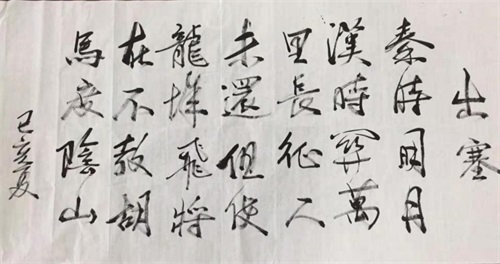 出塞
秦時明月
漢時關萬
里長征人
未還但使
龍城飛將
在不教胡
馬度陰山
己亥夏